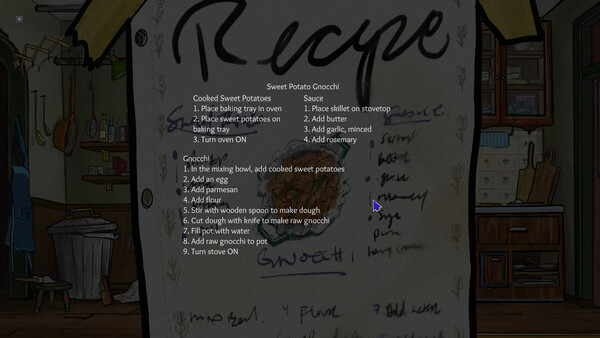 Recipe
Sweet Potato Gnocchi
Cooked Sweet Potatoes
1. Place baking tray in oven
2. Place sweet potatoes on
baking tray
3. Turn oven ON
Sauce
1. Place skillet on stovetop
2. Add butter
3. Add garlic, minced
4. Add rosemary
Gnocchi
1. In the mixing bowl, add cooked sweet potatoes
2. Add an egg
3. Add parmesan
4. Add flour
5. Stir with wooden spoon to make dough
6. Cut dough with knife to make raw gnocchi
7. Fill pot with water
8. Add raw gnocchi to pot
9. Turn stove ON
GNOCCHI
4 Flour